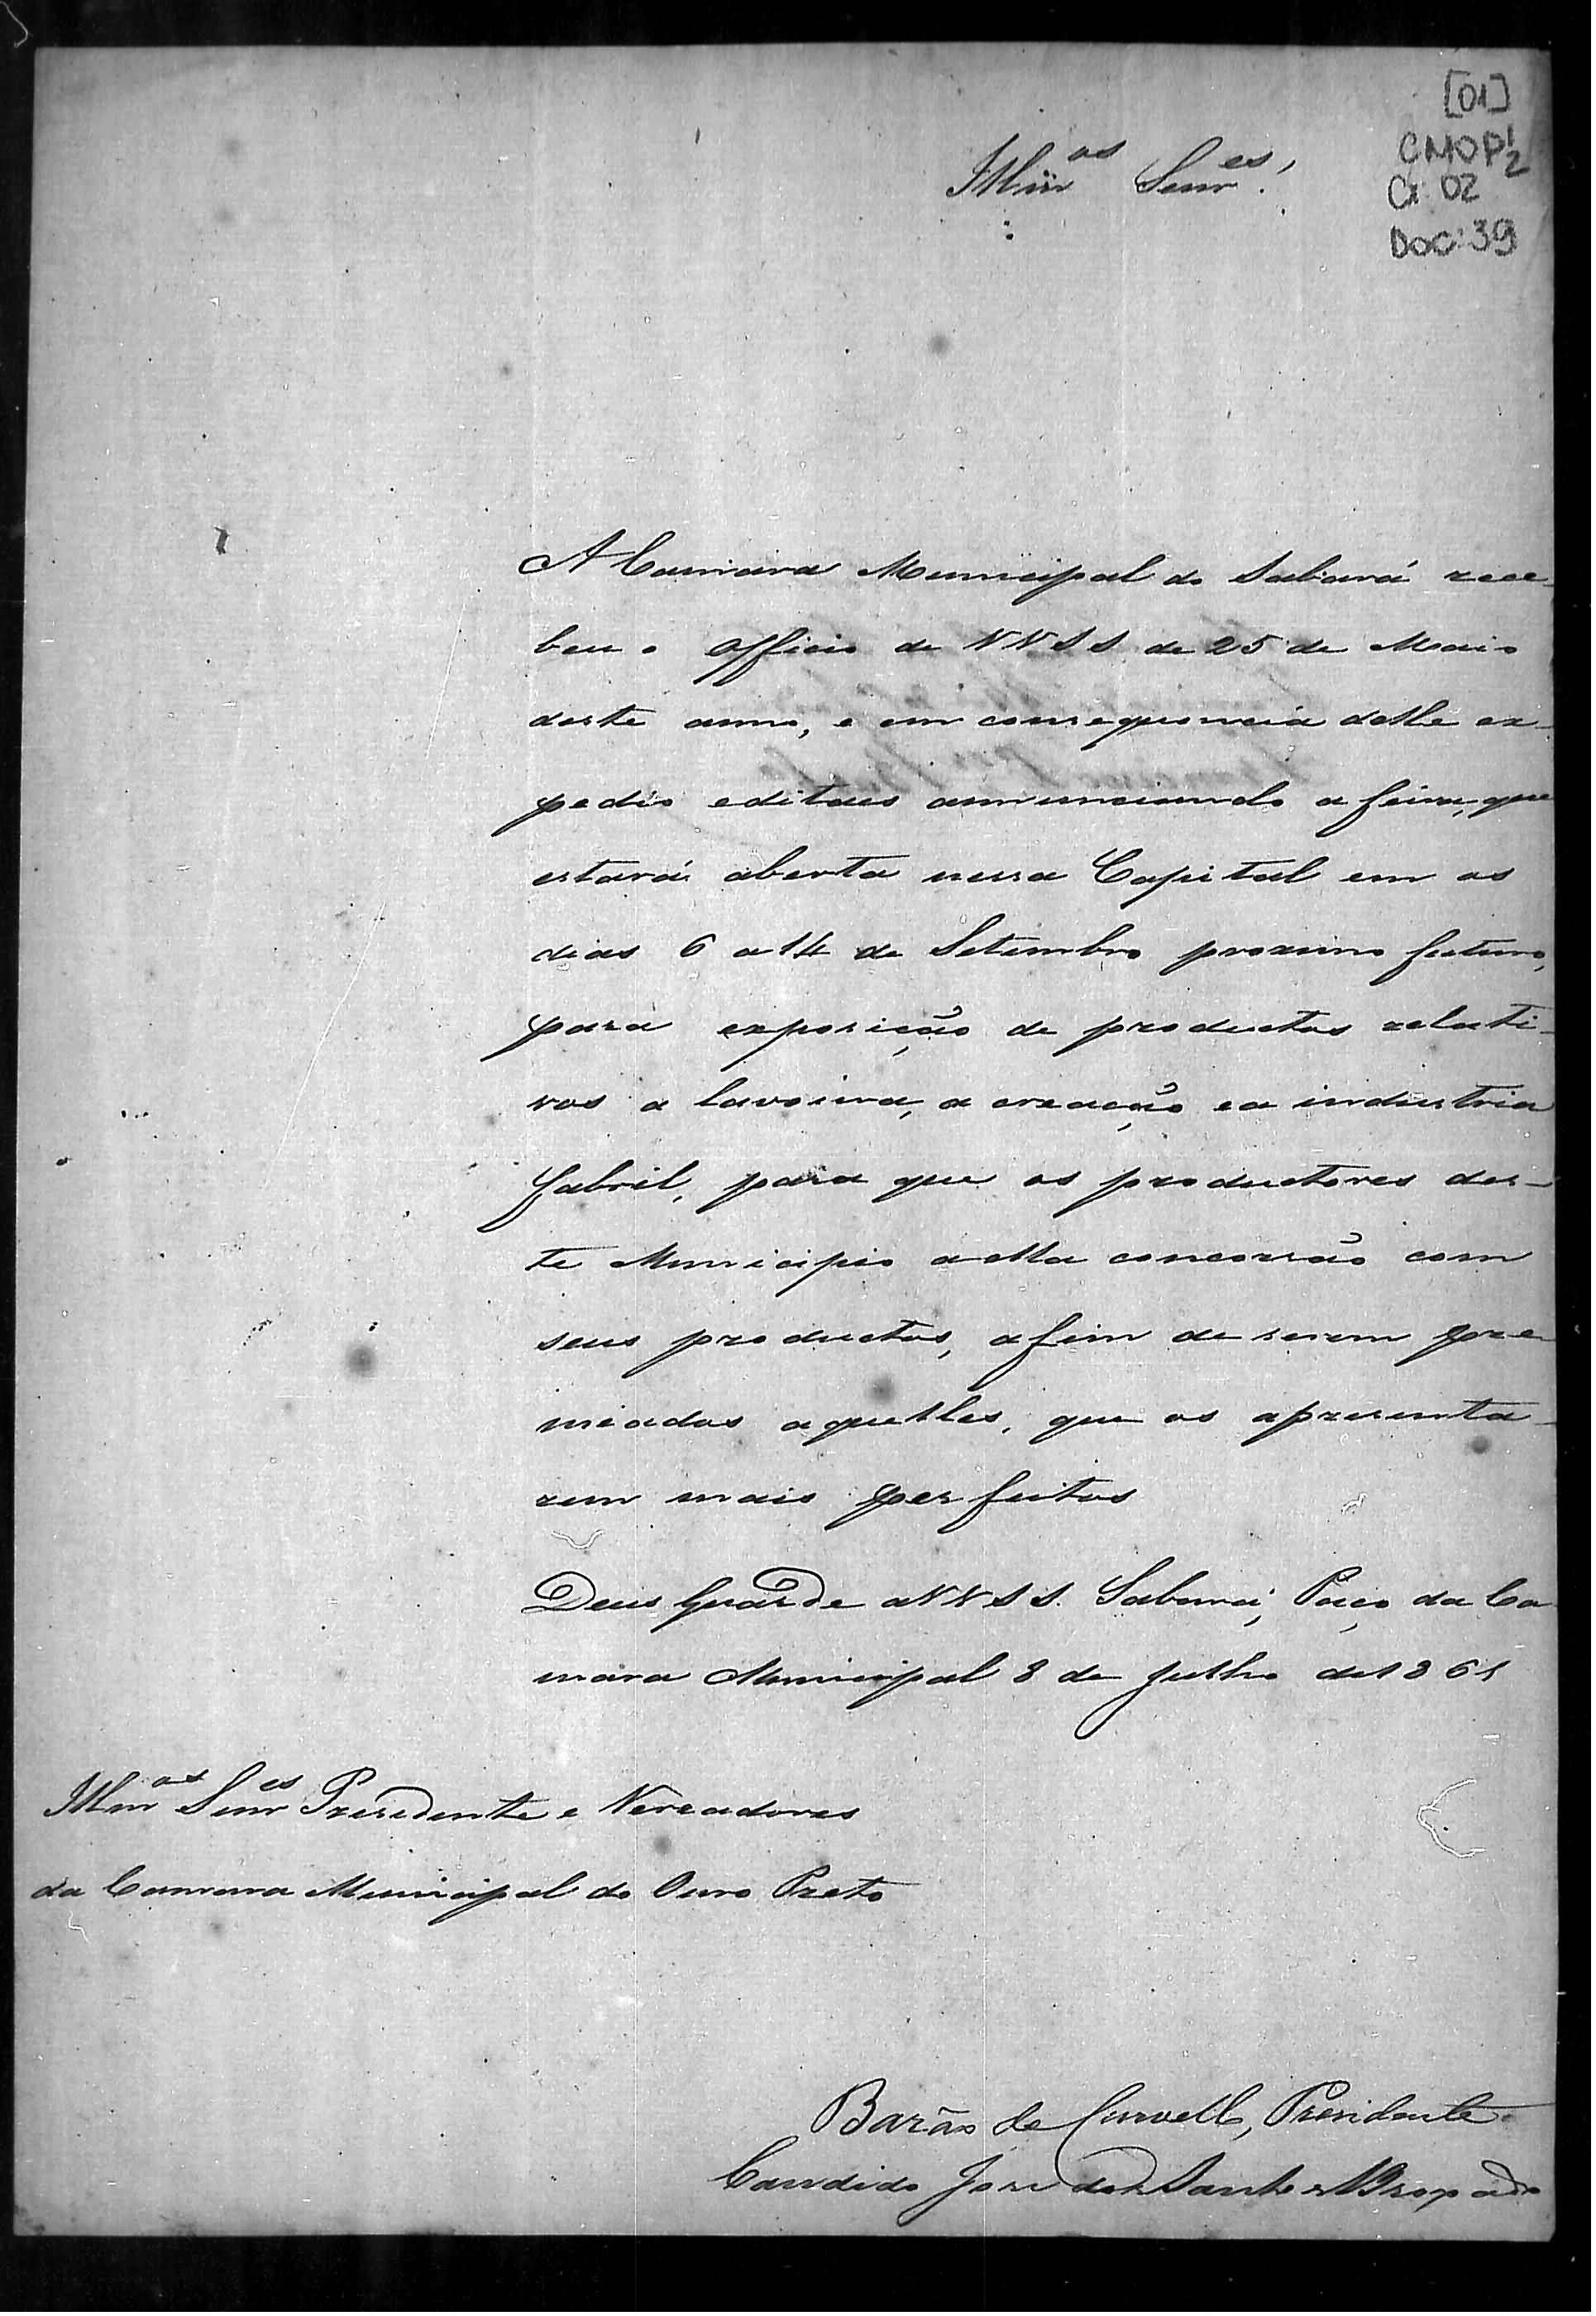 [01]
CMOP 1/2
Cx: 02
Doc: 39
Illmos Senres!
A Camara Municipal do Sabará rece-
beu o officio de VVSS de 25 de Maio
deste anno, e em consequencia delle ex-
pedio editaes annunciando a feira, que
estará aberta nessa Capital em os
dias 6 a 14 de Setembro proximo futuro,
para exposição de productos relati-
vos a lavoira, a creação e a industria
fabril, para que os productores des-
te Municipio a ella concorrão com
seus productos, a fim de serem pre
miados aquelles, que os apresenta-
rem mais perfeitos
Deus Guarde a VVSS. Sabará, Paço da Ca
mara Municipal 8 de Julho de 1861
Illmos Senres Presidente e Vereadores
da Camara Municipal do Ouro Preto
Barão de Curvello, Presidente
Candido José dos Santos